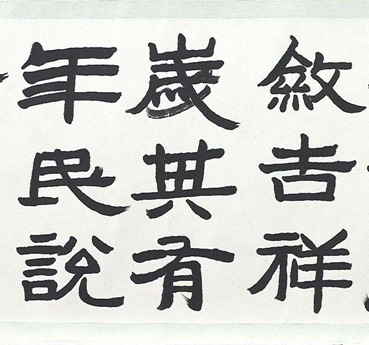 斂吉祥
歲其有
年民說